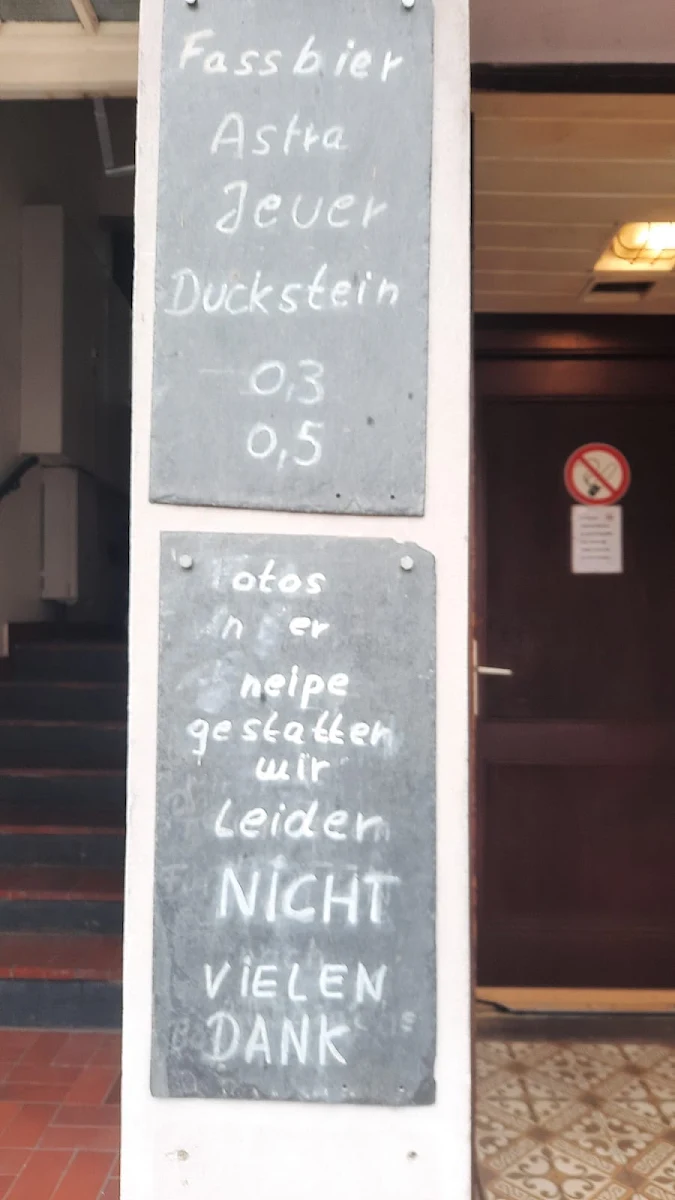 Fassbier
Astra
Jever
Duckstein
0,3
0,5
otos
n er
neipe
gestatten
wir
Leider
NICHT
ViELEN
DANK